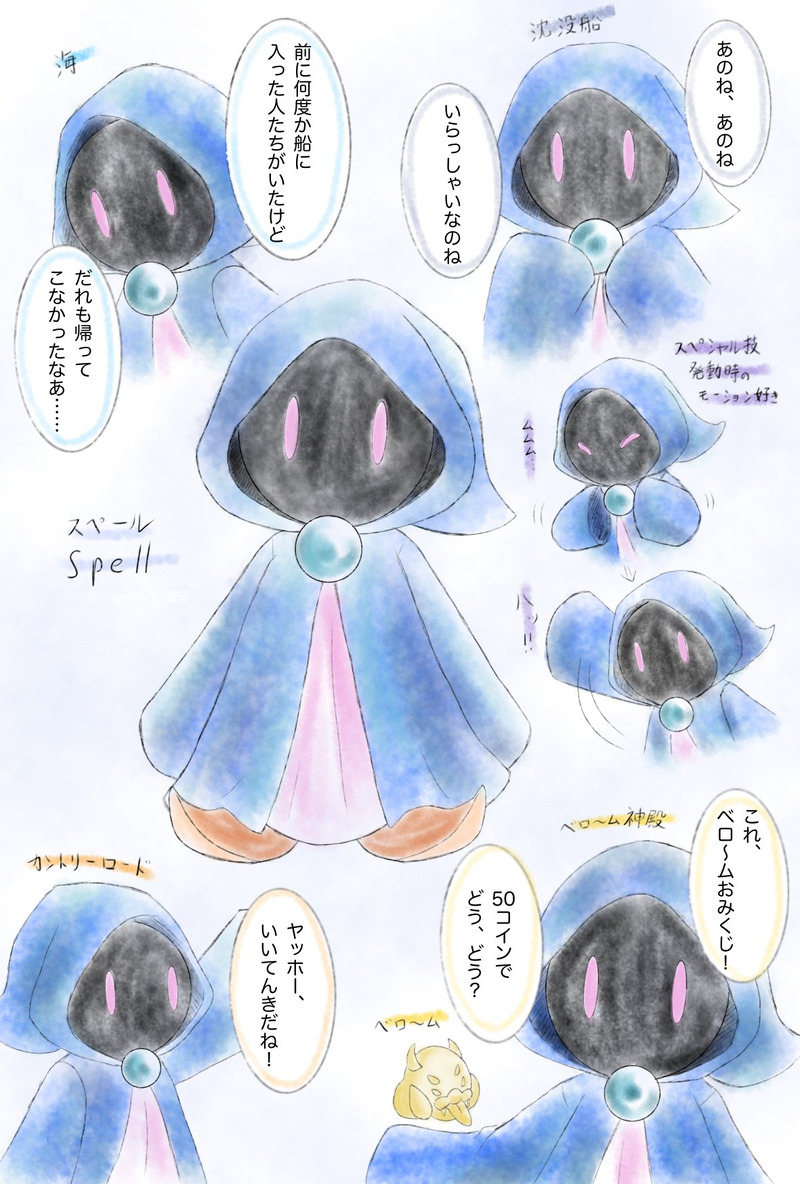 海
前に何度か船に
入った人たちがいたけど
だれも帰って
こなかったなあ……
沈没船
あのね、あのね
いらっしゃいなのね
スペシャル技
発動時の
モーション好き
ムムム…
ハッ!!
スペール
Spell
カントリーロード
ヤッホー、
いいてんきだね！
ベロ〜ム神殿
これ、
ベロ〜ムおみくじ！
50コインで
どう、どう？
ベロ〜ム